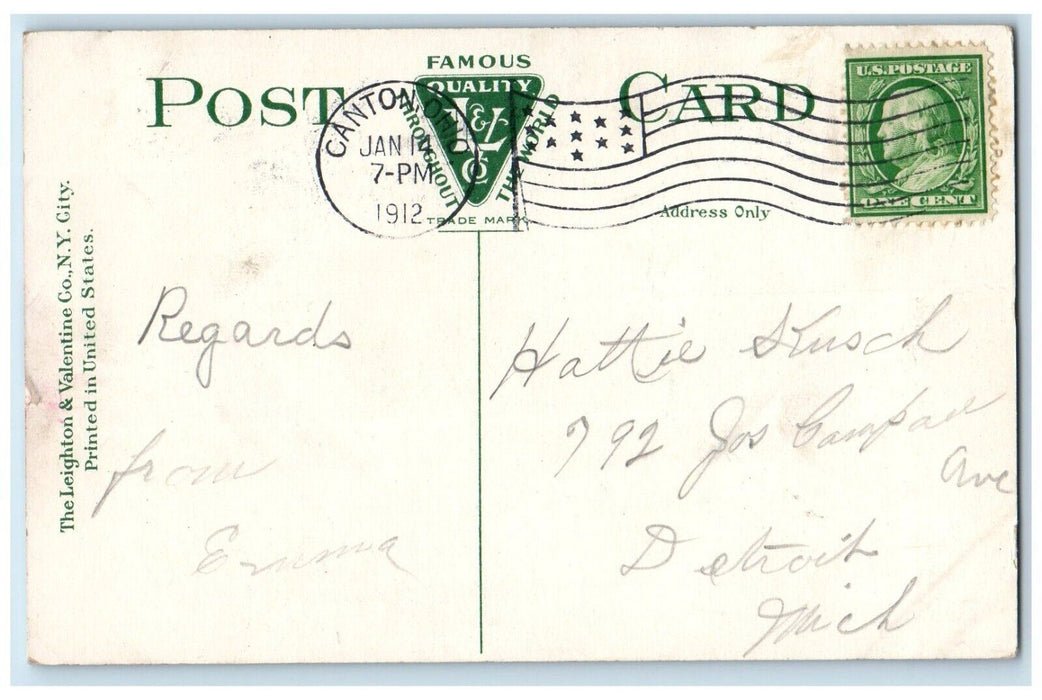 POST CARD
FAMOUS
QUALITY
L&V
Co
THROUGHOUT
THE WORLD
TRADE MARK
CANTON, OHIO
JAN 14
7-PM
1912
U.S. POSTAGE
ONE CENT
Address Only
The Leighton & Valentine Co., N.Y. City.
Printed in United States.
Regards
from
Emma
Hattie Kusch
792 Jos Campau
Ave
Detroit
Mich